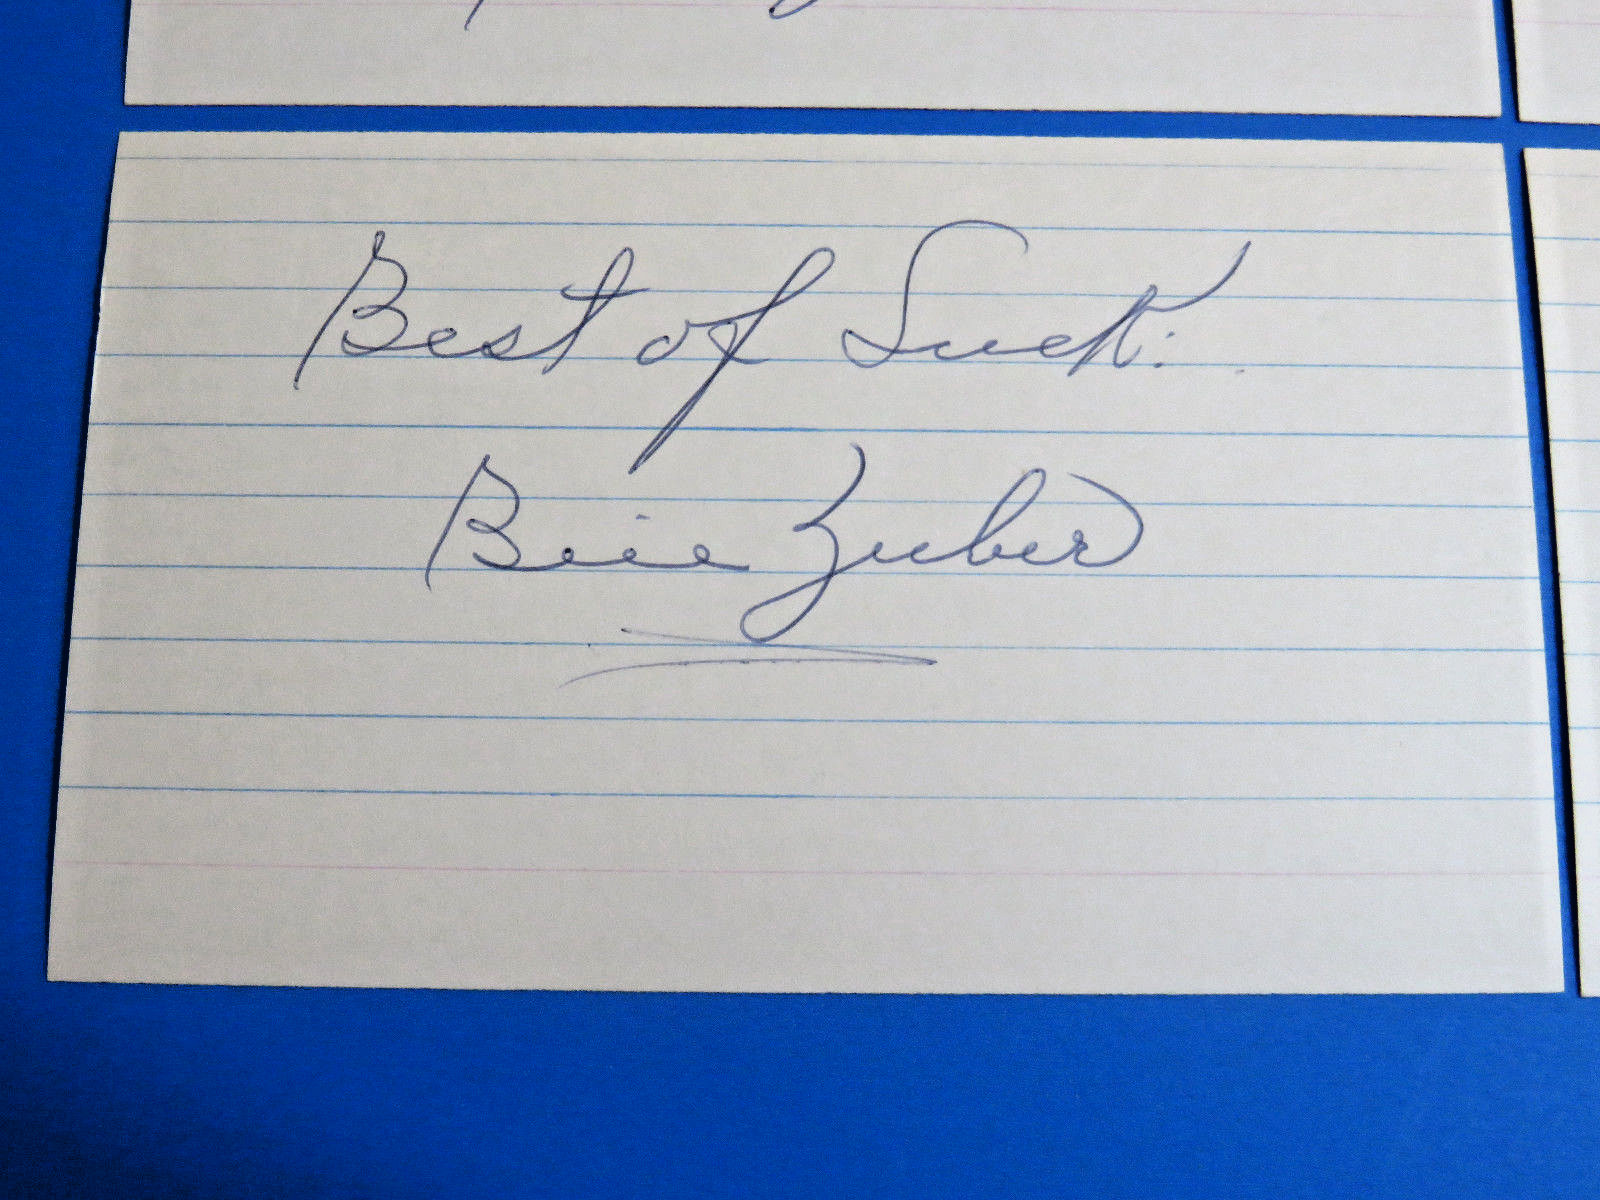 Best of Luck.
Bill Zuber